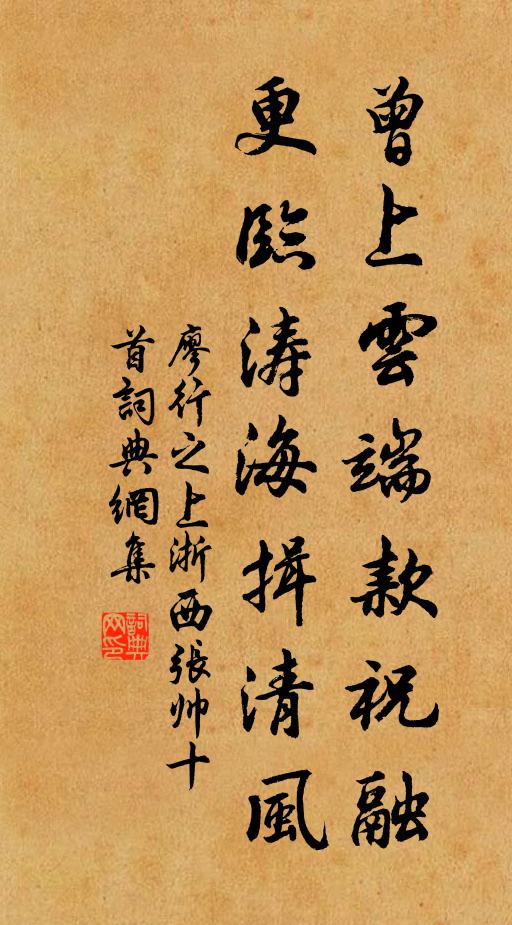 曾上雲端款祝融
更臨濤海揖清風
廖行之上浙西張帅十
首詞典網集
詞典网印